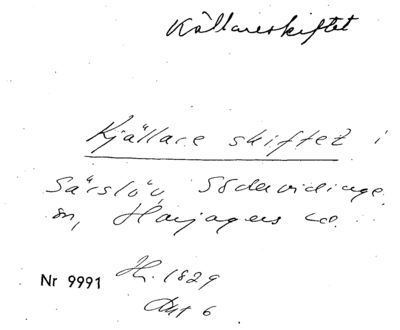 Källareskiftet
Kjällare skiftet i
Särslöv, Södervidinge
sn, Harjagers hd.
Nr 9991 Hr. 1829
Akt 6